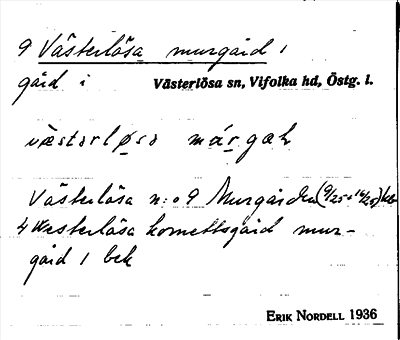 9 Västerlösa murgård 1
gård i Västerlösa sn, Vifolka hd, Östg. l.
västərløsa márgaḷ
Västerlösa n:o 9 Murgården (9/25 + 16/25) bek
4 Westerlösa kornettsgård mur-
gård 1 bek
ERIK NORDELL 1936